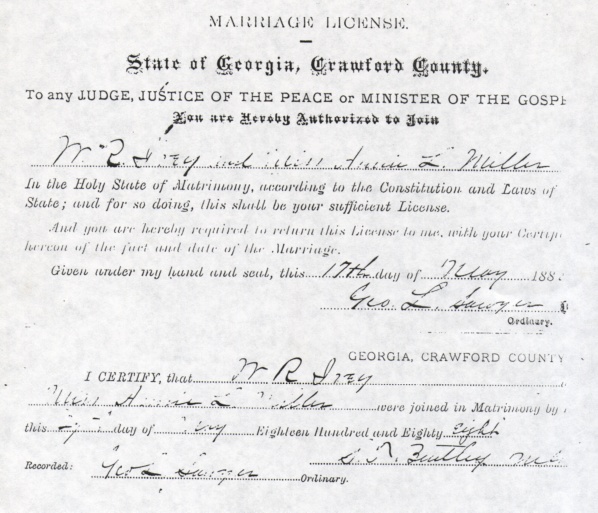 MARRIAGE LICENSE.
State of Georgia, Crawford County.
To any JUDGE, JUSTICE OF THE PEACE or MINISTER OF THE GOSPE
You are Hereby Authorized to Join
W R Ivey and Miss Annie L. Miller
In the Holy State of Matrimony, according to the Constitution and Laws of
State; and for so doing, this shall be your sufficient License.
And you are hereby required to return this License to me, with your Certific
hereon of the fact and date of the Marriage.
Given under my hand and seal, this 17th day of May 188
Geo. L. Sawyer
Ordinary.
GEORGIA, CRAWFORD COUNTY
I CERTIFY, that W R Ivey
Miss Annie L Miller were joined in Matrimony by
this day of May Eighteen Hundred and Eighty Eight
Recorded: Geo L Sawyer Ordinary.